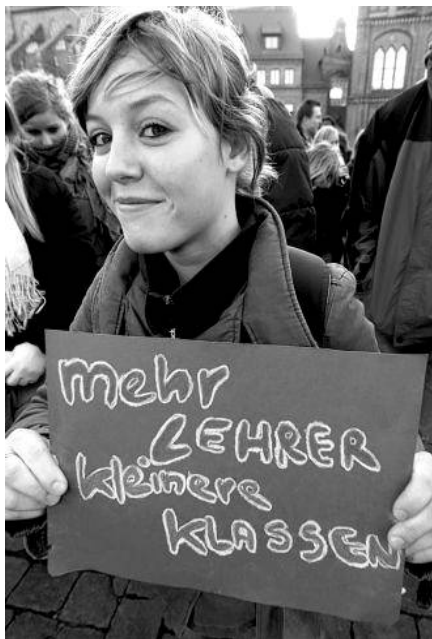 mehr
LEHRER
kleinere
KLASSEN